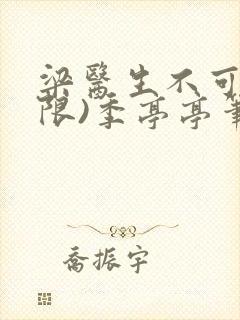 梁醫生不可
限)季亭亭筆
喬振宇